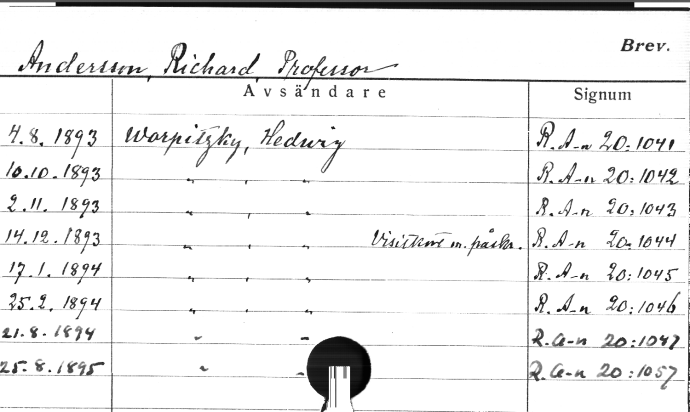 Brev.
Andersson, Richard, Professor
Avsändare Signum
4.8. 1893 Worpitzky, Hedwig R. A-n 20:1041
10.10.1893 " , " R. A-n 20:1042
2.11. 1893 " , " R. A-n 20:1043
14.12.1893 " , " Visitkort m. påskr. R. A-n 20:1044
17.1. 1894 " , " R. A-n 20:1045
25.2. 1894 " , " R. A-n 20:1046
21.8. 1894 " " R. A-n 20:1047
25.8.1895 " " R. A-n 20:1057